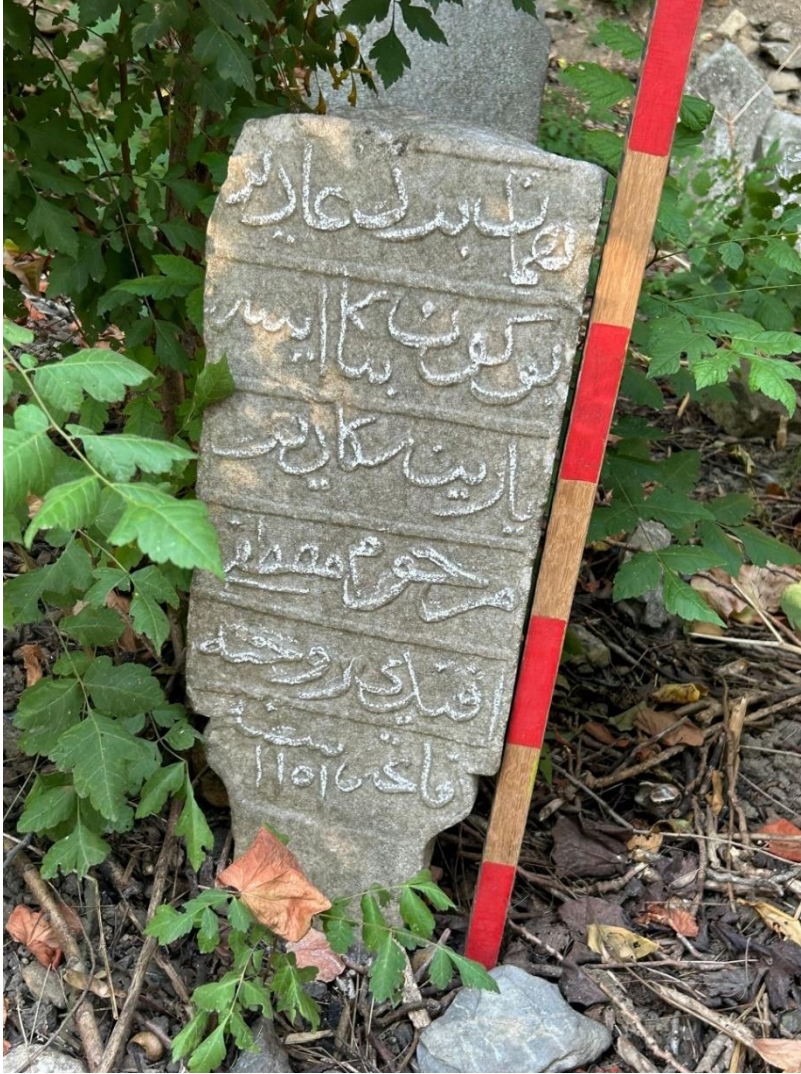 همان بدن عاريت
بو كون بكا ايسه
يارين سكادر
مرحوم مصطفى
افندي روحنه
فاتحه سنه ١١٥١